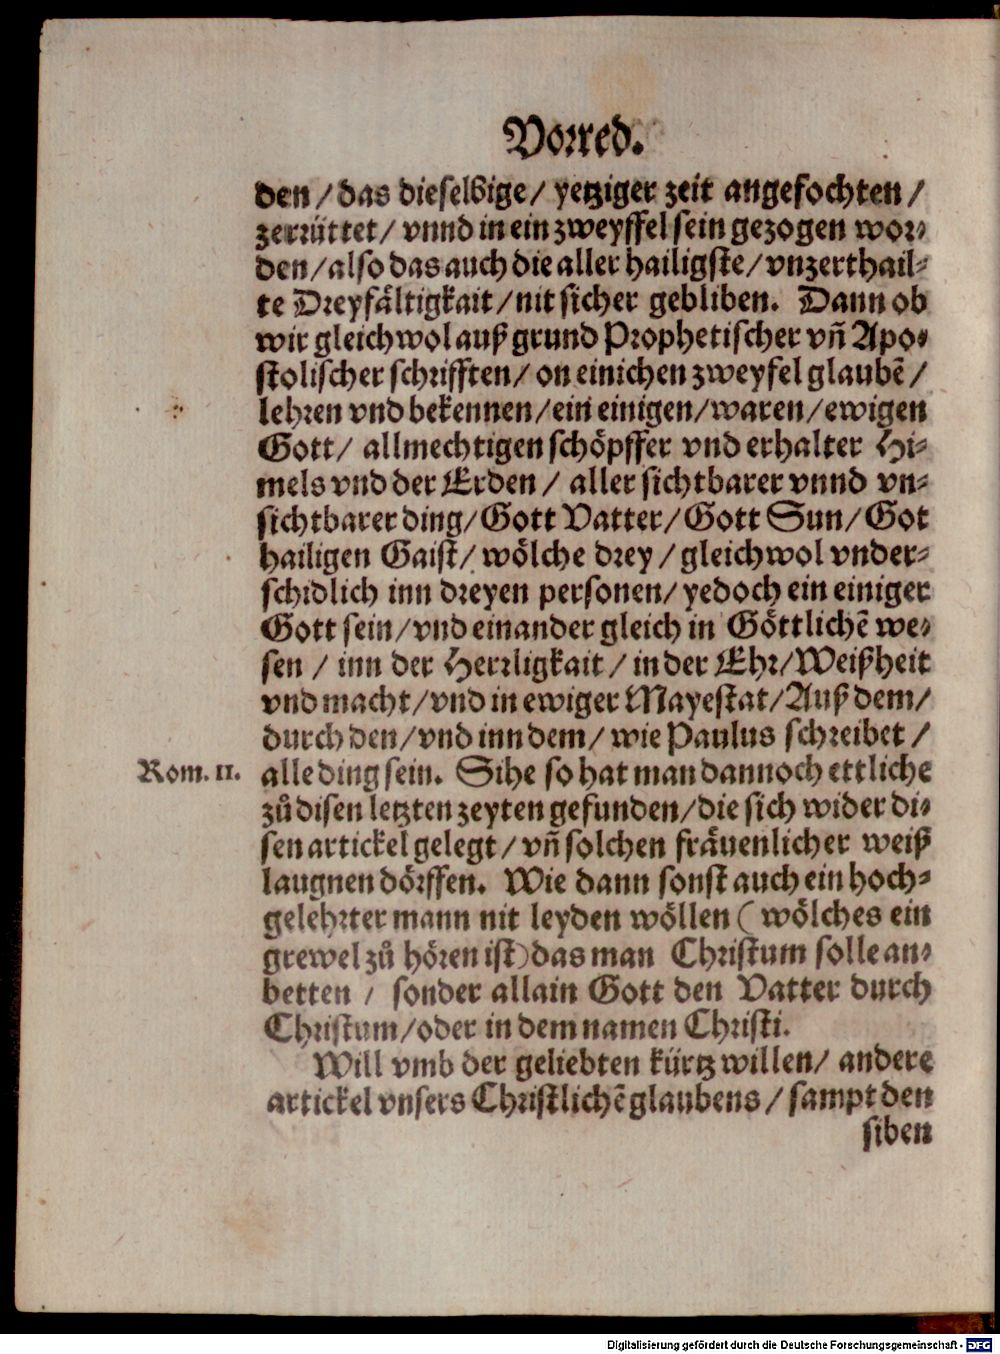 Vorred.
den / das dieselbige / yetziger zeit angefochten /
zerrüttet / vnnd in ein zweyffel sein gezogen wor-
den / also das auch die aller hailigste / vnzerthail-
te Dreyfältigkait / nit sicher gebliben. Dann ob
wir gleichwol auß grund Prophetischer vñ Apo-
stolischer schrifften / on einichen zweyfel glaubẽ /
lehren vnd bekennen / ein einigen / waren / ewigen
Gott / allmechtigen schöpffer vnd erhalter Hi-
mels vnd der Erden / aller sichtbarer vnnd vn-
sichtbarer ding / Gott Vatter / Gott Sun / Got
hailigen Gaist / wölche drey / gleichwol vnder-
schidlich inn dreyen personen / yedoch ein einiger
Gott sein / vnd einander gleich in Göttlichẽ we-
sen / inn der Herrligkait / in der Ehr / Weißheit
vnd macht / vnd in ewiger Mayestat / Auß dem /
durch den / vnd inn dem / wie Paulus schreibet /
Rom. 11. alle ding sein. Sihe so hat man dannoch ettliche
zů disen letzten zeyten gefunden / die sich wider di-
sen artickel gelegt / vñ solchen fräuenlicher weiß
laugnen dörffen. Wie dann sonst auch ein hoch-
gelehrter mann nit leyden wöllen ( wölches ein
grewel zů hören ist) das man Christum solle an-
betten / sonder allain Gott den Vatter durch
Christum / oder in dem namen Christi.
Will vmb der geliebten kürtz willen / andere
artickel vnsers Christlichẽ glaubens / sampt den
siben
Digitalisierung gefördert durch die Deutsche Forschungsgemeinschaft - DFG